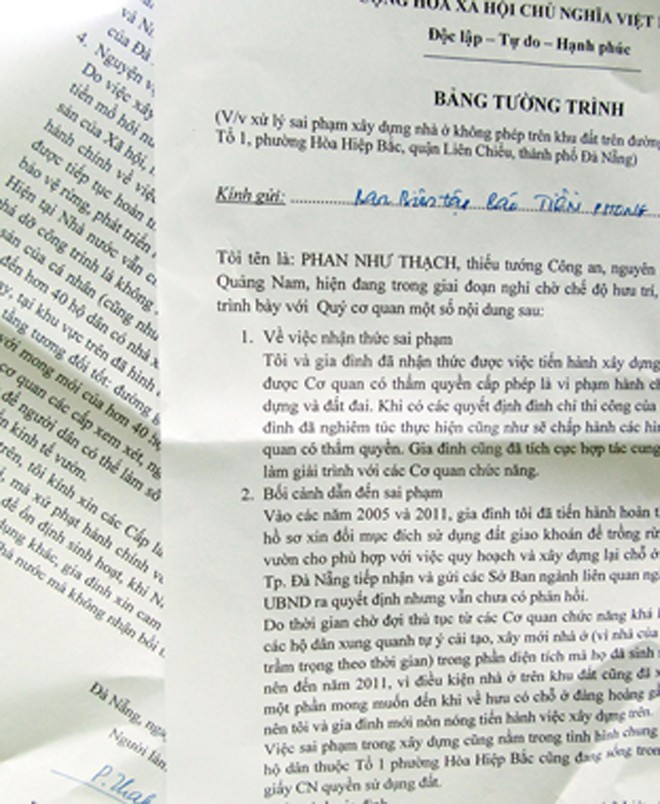 và N
của Đà
4. Nguyện v
Do việc xây
tiền mồ hôi nư
sản của Xã hội,
hành chính về việc
được tiếp tục hoàn th
bảo vệ rừng, phát triển
Hiện tại Nhà nước vẫn c
phá dỡ công trình là không
sản của cá nhân (cũng như
đến hơn 40 hộ dân có nhà x
y, tại khu vực trên đã hình
tầng tương đối tốt: đường g
với mong mỏi của hơn 40 h
cơ quan các cấp xem xét, ng
để người dân có thể làm sổ
ển kinh tế vườn.
trên, tôi kính xin các Cấp lã
, mà xử phạt hành chính v
để ổn định sinh hoạt, khi N
dụng khác, gia đình xin cam
hà nước mà không nhận bồi t
Đà Nẵng, ngà
Người làn
P. Thah
ỘNG HÒA XÃ HỘI CHỦ NGHĨA VIỆT
Độc lập – Tự do – Hạnh phúc
BẢNG TƯỜNG TRÌNH
(V/v xử lý sai phạm xây dựng nhà ở không phép trên khu đất trên đường
Tổ 1, phường Hòa Hiệp Bắc, quận Liên Chiểu, thành phố Đà Nẵng)
Kính gửi: Ban Biên tập Báo TIỀN PHONG
Tôi tên là: PHAN NHƯ THẠCH, thiếu tướng Công an, nguyên
Quảng Nam, hiện đang trong giai đoạn nghỉ chờ chế độ hưu trí,
trình bày với Quý cơ quan một số nội dung sau:
1. Về việc nhận thức sai phạm
Tôi và gia đình đã nhận thức được việc tiến hành xây dựng
được Cơ quan có thẩm quyền cấp phép là vi phạm hành ch
dựng và đất đai. Khi có các quyết định đình chỉ thi công của
đình đã nghiêm túc thực hiện cũng như sẽ chấp hành các hì
quan có thẩm quyền. Gia đình cũng đã tích cực hợp tác cung
làm giải trình với các Cơ quan chức năng.
2. Bối cảnh dẫn đến sai phạm
Vào các năm 2005 và 2011, gia đình tôi đã tiến hành hoàn t
hồ sơ xin đổi mục đích sử dụng đất giao khoán để trồng rừ
vườn cho phù hợp với việc quy hoạch và xây dựng lại chỗ ở
Tp. Đà Nẵng tiếp nhận và gửi các Sở Ban ngành liên quan ng
UBND ra quyết định nhưng vẫn chưa có phản hồi.
Do thời gian chờ đợi thủ tục từ các Cơ quan chức năng khá l
các hộ dân xung quanh tự ý cải tạo, xây mới nhà ở (vì nhà của
trầm trọng theo thời gian) trong phần diện tích mà họ đã sinh s
nên đến năm 2011, vì điều kiện nhà ở trên khu đất cũng đã x
một phần mong muốn đến khi về hưu có chỗ ở đàng hoàng gầ
nên tôi và gia đình mới nôn nóng tiến hành việc xây dựng trên.
Việc sai phạm trong xây dựng cũng nằm trong tình hình chung
hộ dân thuộc Tổ 1 phường Hòa Hiệp Bắc cũng đang sống tron
giấy CN quyền sử dụng đất.